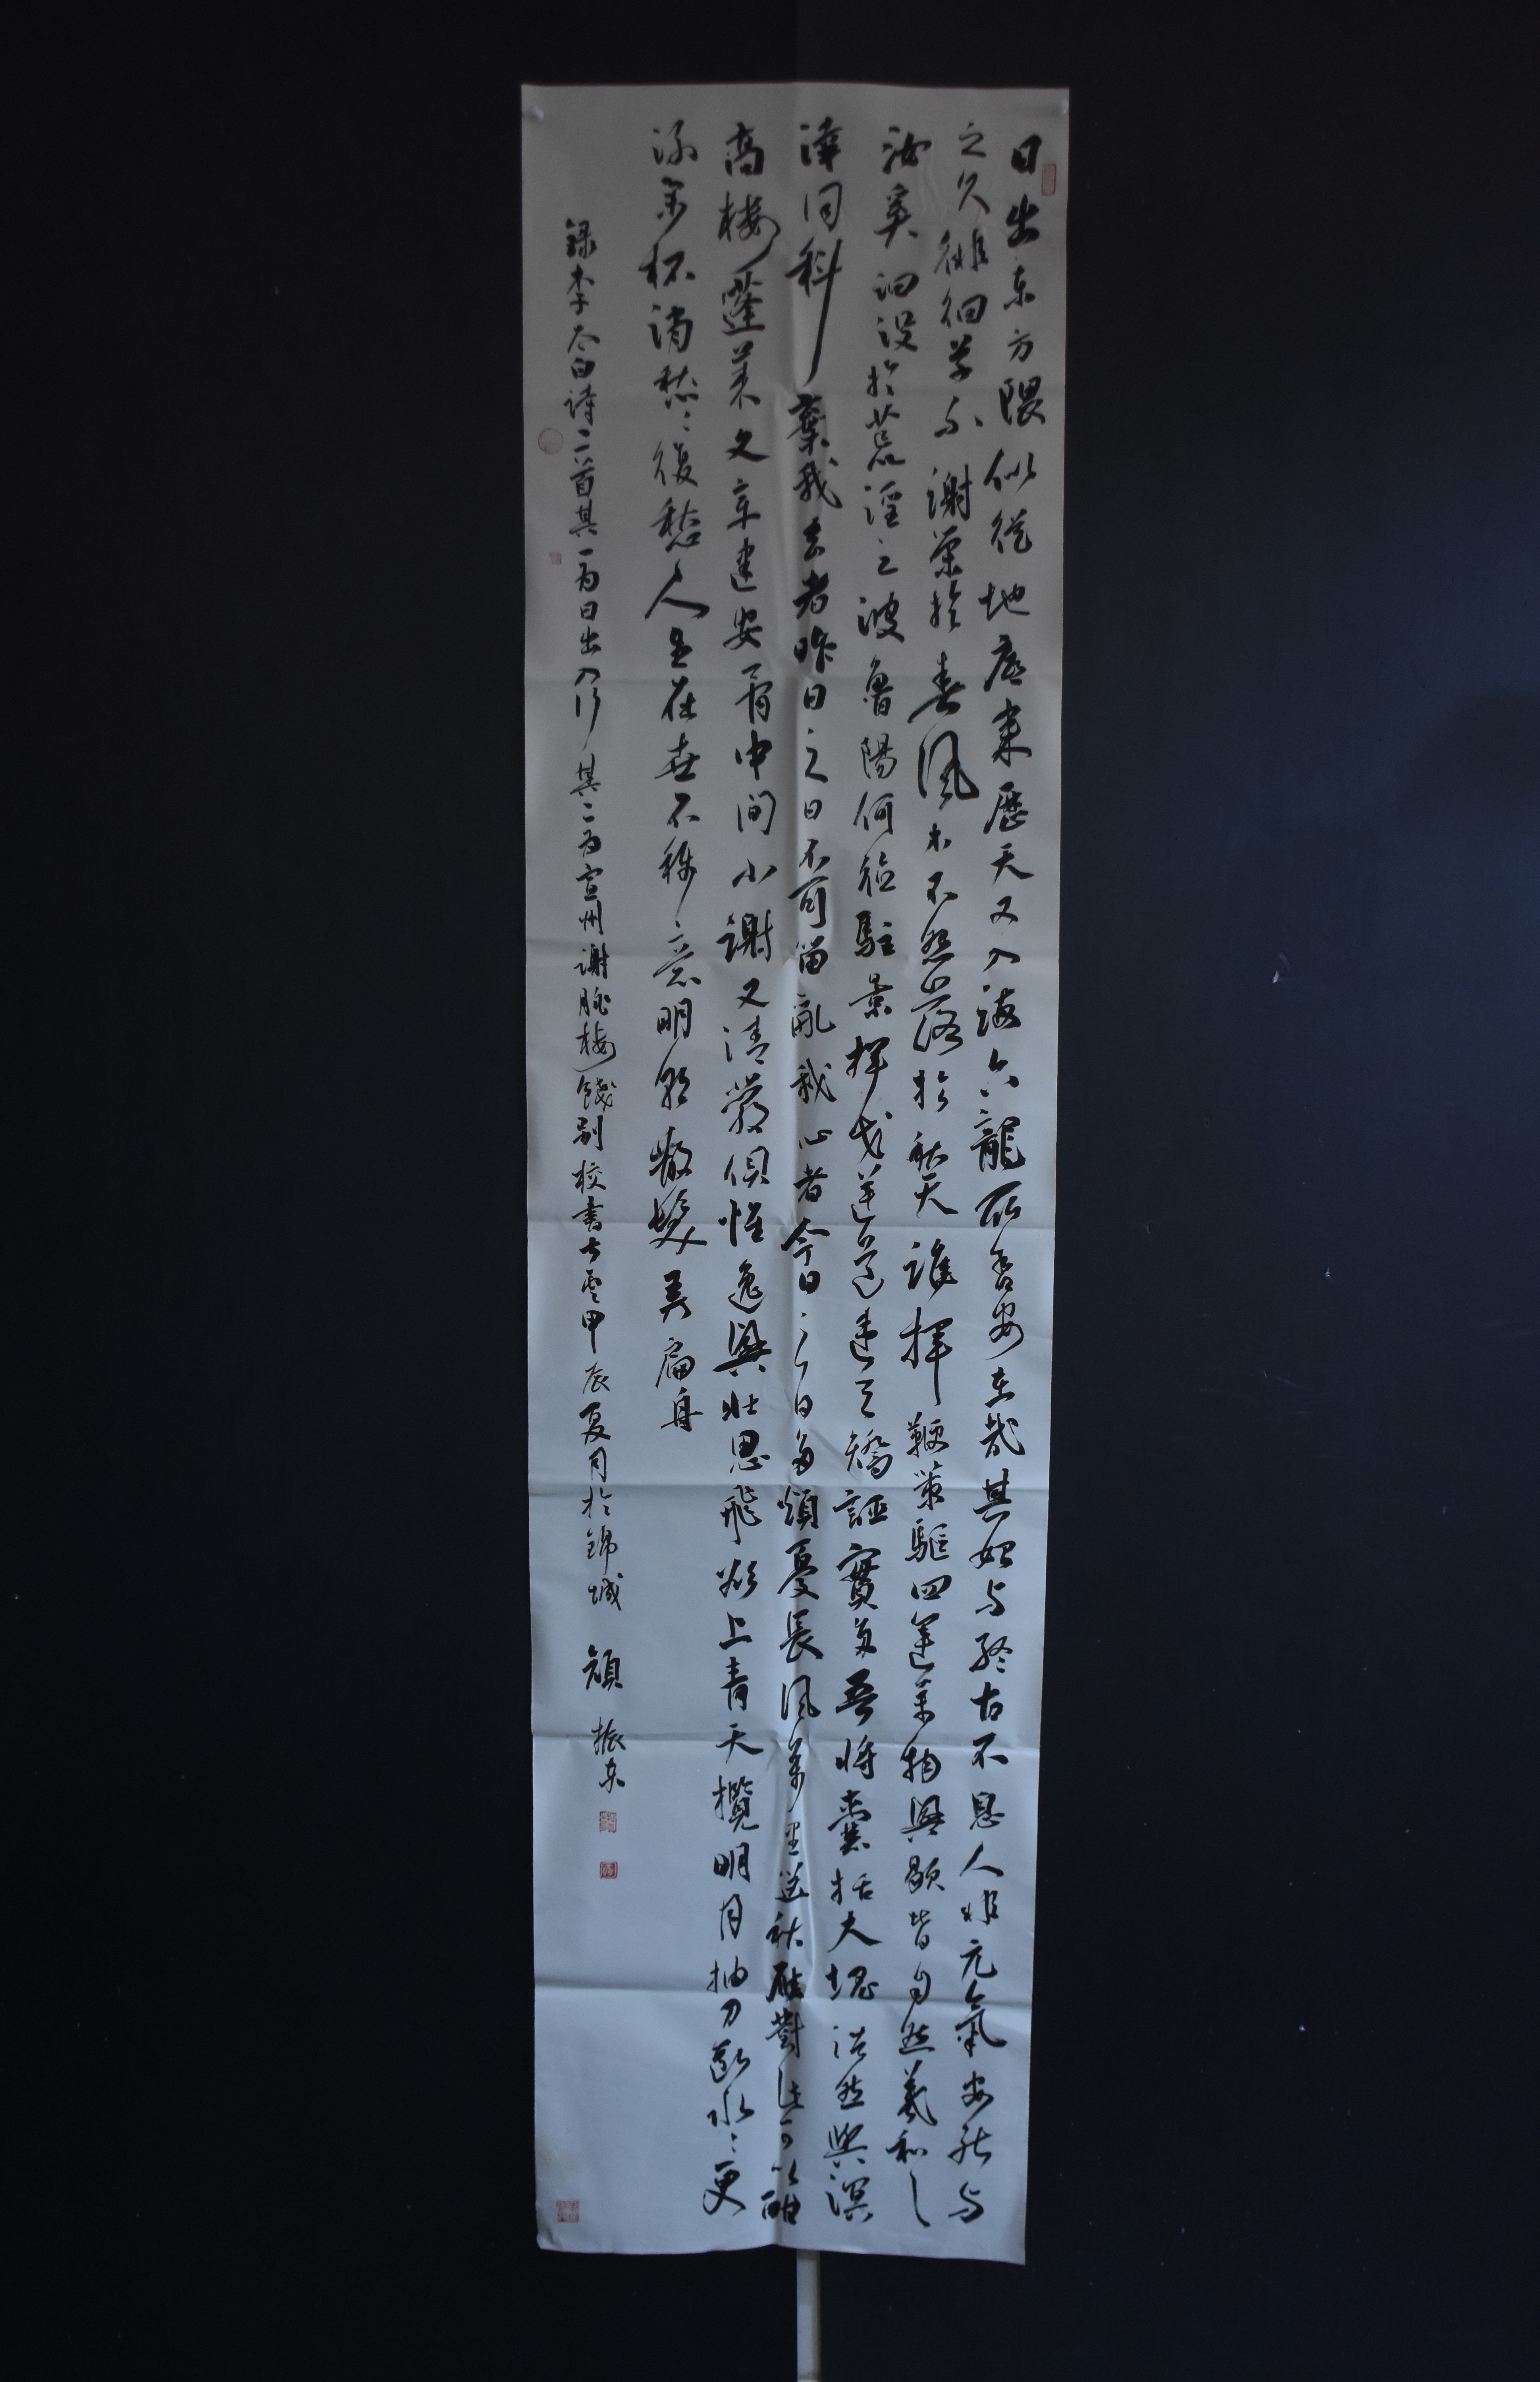 日出东方隈似從地底来歷天又入海六龍所舍安在哉其始与终古不息人非元氣安能与
之久徘徊草不謝榮於春风木不怨落於秋天誰揮鞭策驅四運萬物興歇皆自然羲和
汝奚汩没於荒淫之波魯陽何德駐景揮戈逆道违天矯誣實多吾將囊括大塊浩然與溟
涬同科棄我去者昨日之日不可留亂我心者今日之日多煩憂長风萬里送秋雁對此可以酣
高楼蓬莱文章建安骨中间小謝又清發俱懷逸興壮思飛欲上青天攬明月抽刀斷水〻更
流举杯消愁〻復愁人生在世不称意明朝散髮弄扁舟
録李太白詩二首其一为日出入行其二为宣州謝朓楼餞别校書叔雲甲辰夏月於锦城 顔振东